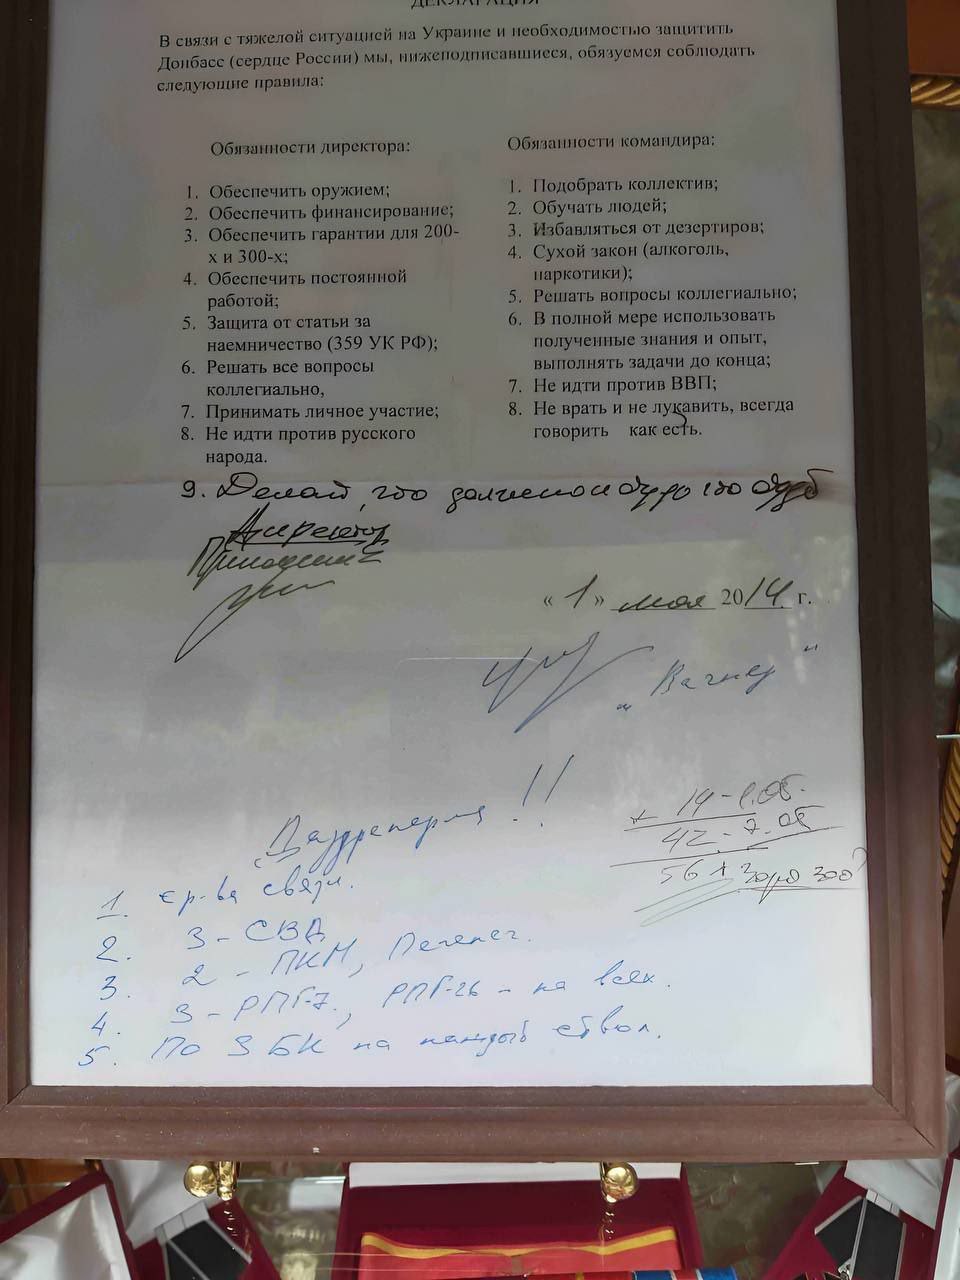 ДЕКЛАРАЦИЯ
В связи с тяжелой ситуацией на Украине и необходимостью защитить
Донбасс (сердце России) мы, нижеподписавшиеся, обязуемся соблюдать
следующие правила:
Обязанности директора:
1. Обеспечить оружием;
2. Обеспечить финансирование;
3. Обеспечить гарантии для 200-
х и 300-х;
4. Обеспечить постоянной
работой;
5. Защита от статьи за
наемничество (359 УК РФ);
6. Решать все вопросы
коллегиально,
7. Принимать личное участие;
8. Не идти против русского
народа.
Обязанности командира:
1. Подобрать коллектив;
2. Обучать людей;
3. Избавляться от дезертиров;
4. Сухой закон (алкоголь,
наркотики);
5. Решать вопросы коллегиально;
6. В полной мере использовать
полученные знания и опыт,
выполнять задачи до конца;
7. Не идти против ВВП;
8. Не врать и не лукавить, всегда
говорить как есть.
9. Делай, что должно и будь что будет
Директор
Пригожин
« 1 » мая 2014 г.
"Вагнер"
!!
14 - 1.05.
+
42 - 7.05
56
1. ср-ва связи.
2. 3 - СВД
3. 2 - ПКМ, Печенег.
4. 3 - РПГ-7, РПГ-26 - на всех.
5. По 3 БК на каждый ствол.